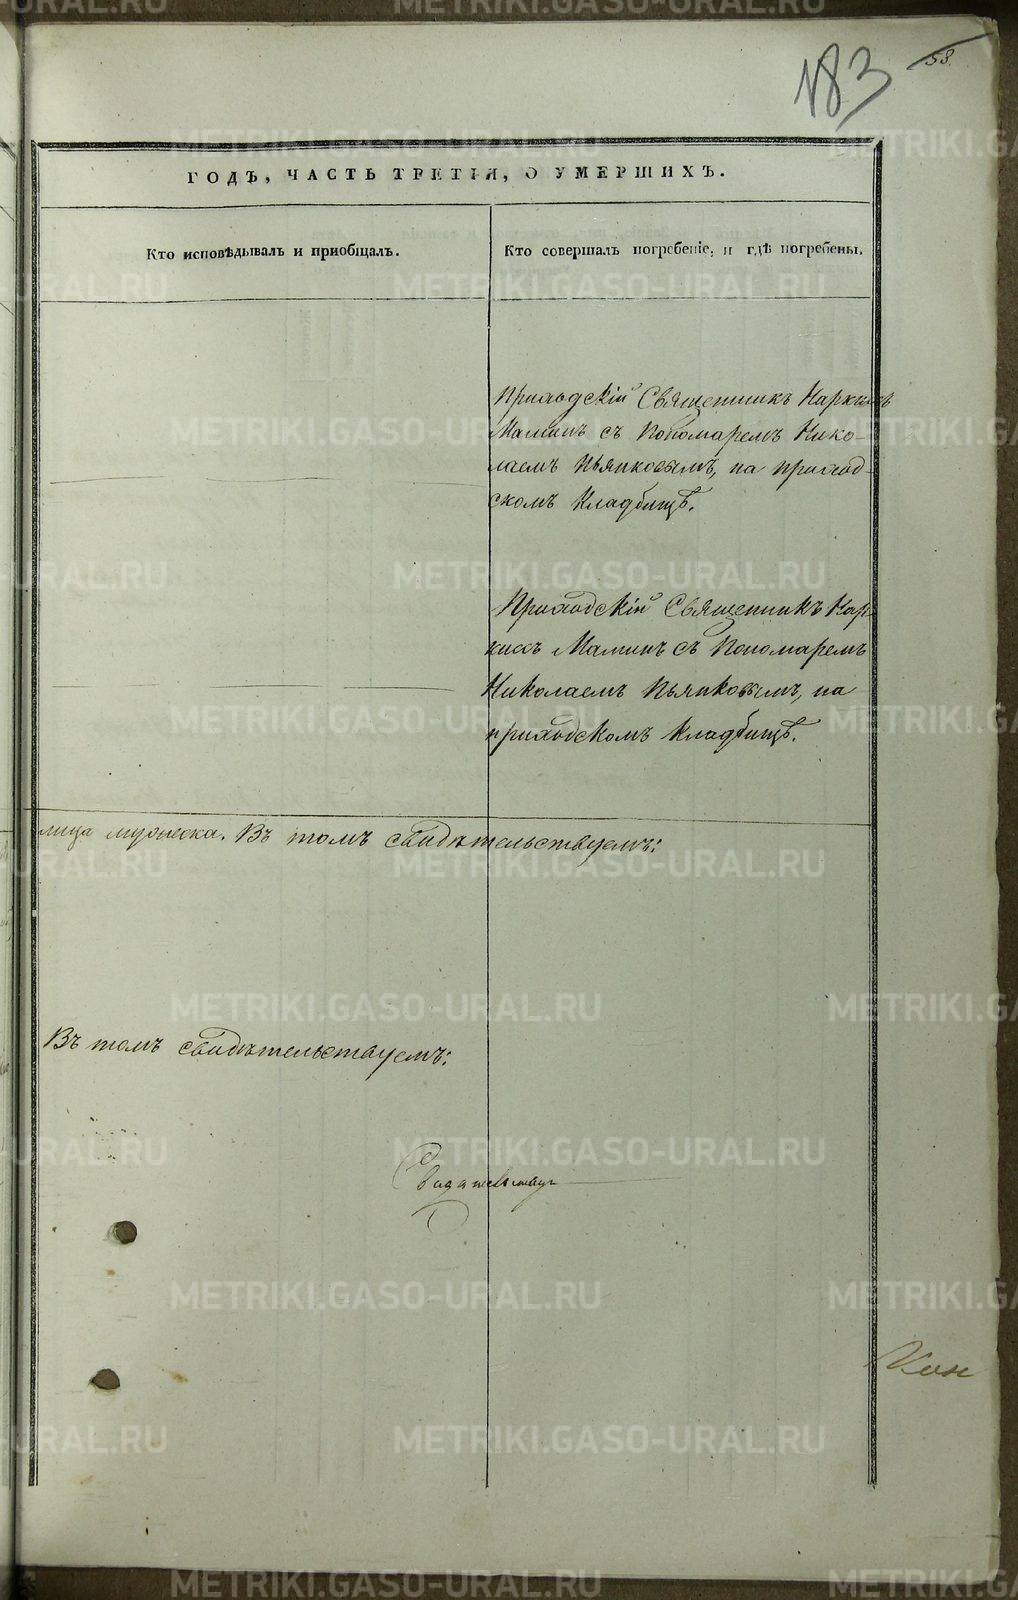 183
58.
ГОДЪ, ЧАСТЬ ТРЕТІЯ, О УМЕРШИХЪ.
Кто исповѣдывалъ и пріобщалъ.
Кто совершалъ погребеніе, и гдѣ погребены.
Приходскій Священникъ Наркисъ
Маминъ съ Пономаремъ Нико-
лаемъ Пьянковымъ, на приход-
скомъ Кладбищѣ.
Приходскій Священникъ Нар-
кисъ Маминъ съ Пономаремъ
Николаемъ Пьянковымъ, на
приходскомъ Кладбищѣ.
лица мужеска. Въ томъ свидѣтельствуемъ:
Въ томъ свидѣтельствуемъ:
METRIKI.GASO-URAL.RU